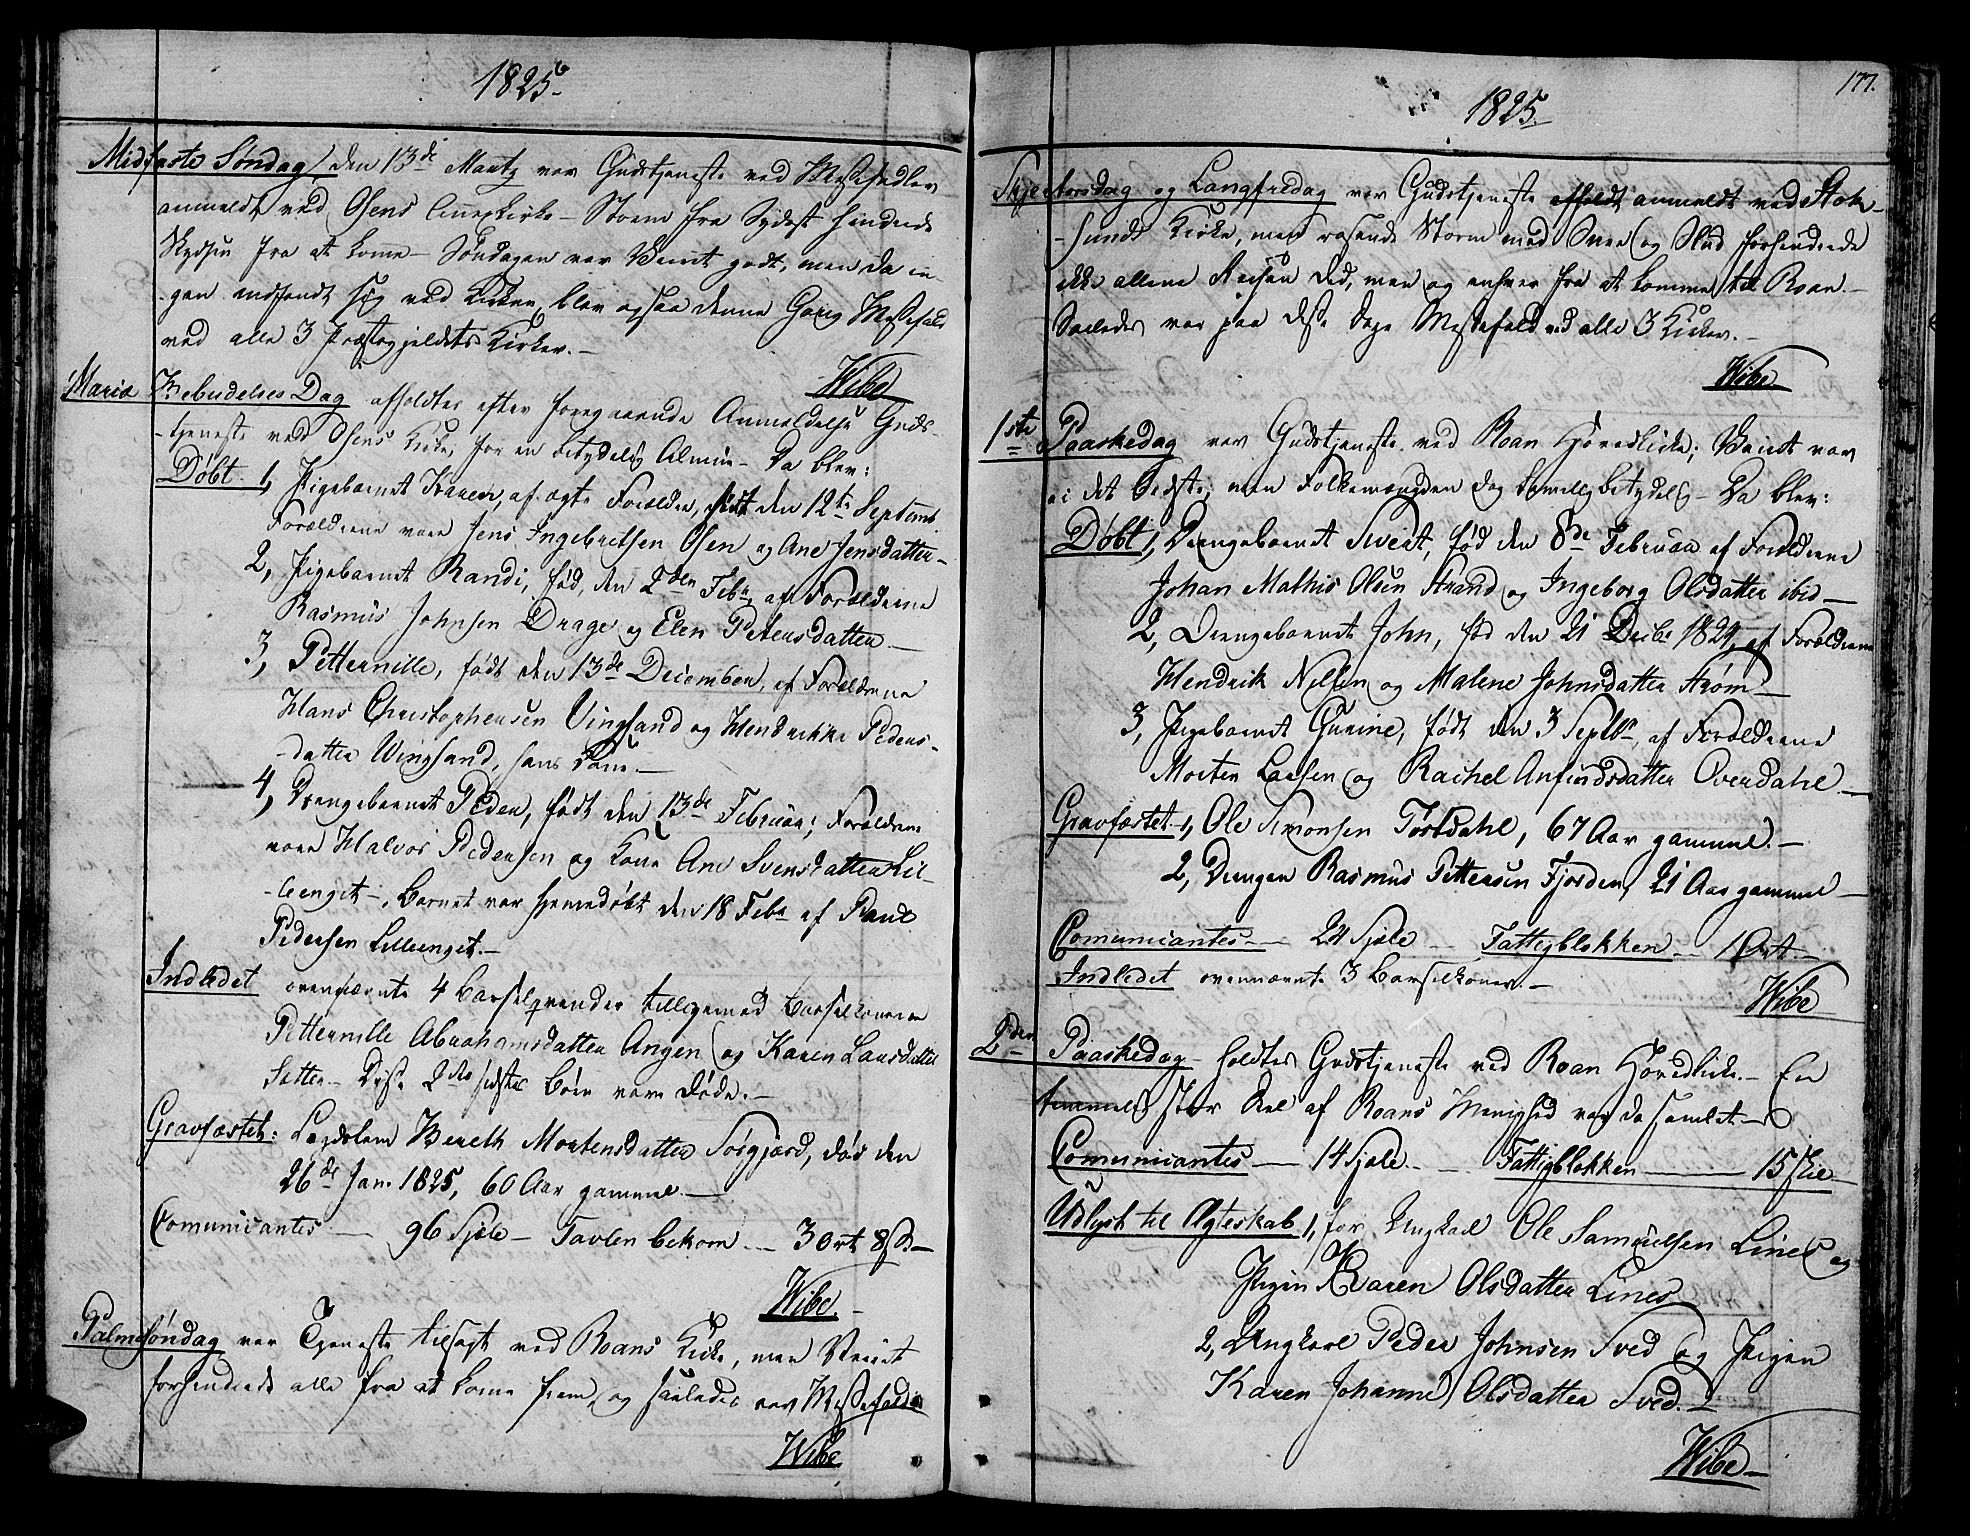 1825.
Midfaste Søndag, den 13de Martz var Gudstjeneste ved Messefald
anmeldt ved Osens Annexkirke – Storm fra Sydost hindrede
fra at komme – Søndagen var Veiret godt, men da in-
gen indfandt sig ved Kirken, blev ogsaa denne Gang Messefald
ved alle 3 Præstegjeldets Kirker. –
Wibe
Maria Bebudelses Dag afholdtes efter foregaaende Anmeldelse Guds-
tjeneste ved Osens Kirke, for en betydelig Almue – Da blev:
Døbt. 1, Pigebarnet Karen, af ægte Forældre, født den 12te Septemb.
Forældrene vare Jens Ingebretsen Osen og Ane Jensdatter –
2, Pigebarnet Randi, fød, den 2den Febr, af Forældrene
Rasmus Johnsen Drage og Elen Petersdatter –
3, Petternille, født den 13de December, af Forældrene
Hans Christophersen Vingsand og Hendrikke Peders-
datter Wingsand, hans Kone. –
4, Drengebarnet Peder, født den 13de Februar; Forældrene
vare Halvor Pedersen og Kone Ane Svensdatter Lil-
leenget –, Barnet var hjemmedøbt den 18 Febr af Paul
Pedersen Lilleenget. –
Indledet ovennævnte 4 Barselqvinder tilligemed Barselkonerne
Petternille Abrahamsdatter Angen og Karen Larsdatter
Sætter – Disse 2de sidstes Børn vare Døde. –
Gravfæstet: Lægdslem Bereth Mortensdatter Sørgjerd, død den
26de Jan. 1825, 60 Aar gammel. –
Comunicantes – 96 Sjæle – Tavlen bekom – 3 Ort 8 ß –
Wibe. –
Palmesøndag var Tjeneste tilsagt ved Roans Kirke, men Veiret
forhindrede alle fra at komme frem, og saaledes var Messefald
Wibe
177.
1825.
Skjertorsdag og Langfredag var Gudstjeneste afholdt anmeldt ved Stok-
sunds Kirke, men rasende Storm med Snee og Slud forhindrede
ikke allene Reisen did, men og enhver fra at komme til Roan –
Saaledes var paa disse Dage Messefald ved alle 3 Kirker. –
Wibe
1ste Paaskedag var Gudstjeneste ved Roan Hovedkirke; Veiret var
ei det bedste; men Folkemængden dog temmelig betydelig – Da blev:
Døbt 1, Drengebarnet Sivert, fød den 8de Februar af Forældrene
Johan Mathis Olsen Strand og Ingeborg Olsdatter ibid –
2, Drengebarnet John, fød den 21 Decbr 1824, af Forældrene
Hendrik Nilsen og Malene Johnsdatter Strøm –
3, Pigebarnet Gurine, født den 3 Septbr, af Forældrene
Morten Larsen og Rachel Anfindsdatter Overdahl. –
Gravfæstet – 1, Ole Simonsen Tostdahl, 67 Aar gammel. –
2, Drengen Rasmus Pettersen Fjorden, 21 Aar gammel –
Comunicantes – 24 Sjæle – Fattigblokken – 1 Ort. –
Indledet ovennævnte 3 Barselkoner. –
Wibe
2den Paaskedag – holdtes Gudstjeneste ved Roan Hovedkirke. – En
temmelig stor Deel af Roans Menighed var da samlet –
Comunicantes – 14 Sjæle – Fattigblokken – 15 skil –
Udlyst til Ægteskab 1, for Ungkarl Ole Samuelsen Lines og
Pigen Karen Olsdatter Lines
2, Ungkarl Peder Johnsen Sved og Pigen
Karen Johanne Olsdatter Sved. –
Wibe –